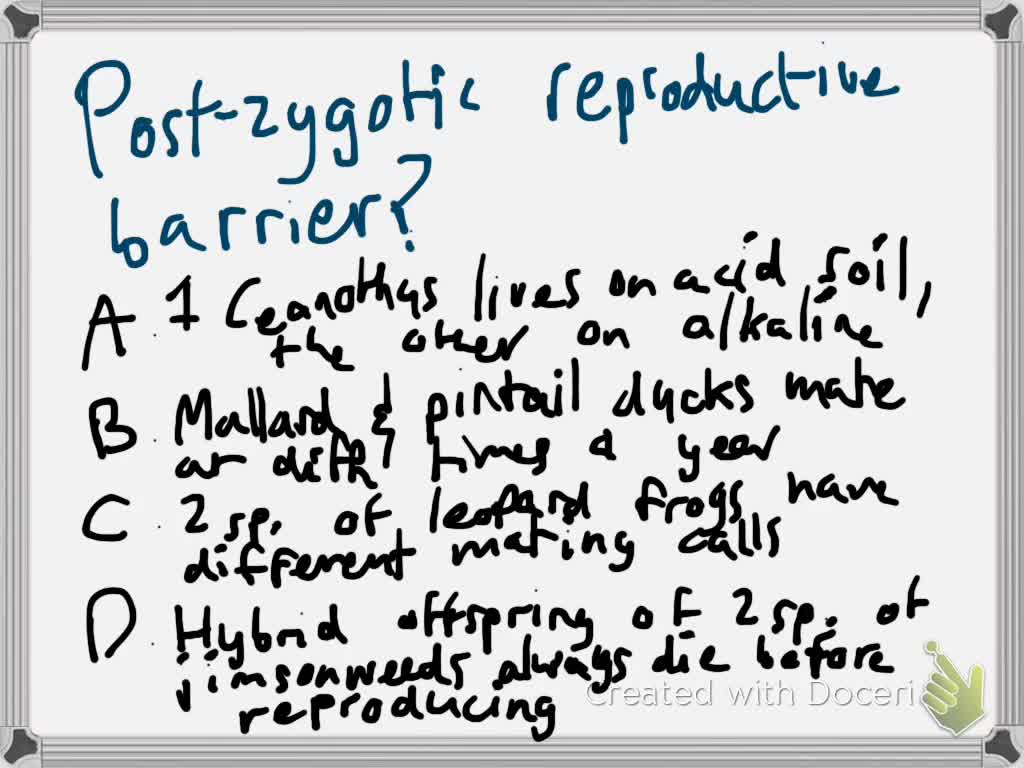 Post-zygotic reproductive
barrier?
A 1 Ceanothus lives on acid soil,
the other on alkaline
B. Mallard & pintail ducks mate
at diff times a year
C. 2 sp. of leopard frogs have
different mating calls
D. Hybrid offspring of 2 sp. of
jimsonweeds always die before
reproducing
Created with Doceri